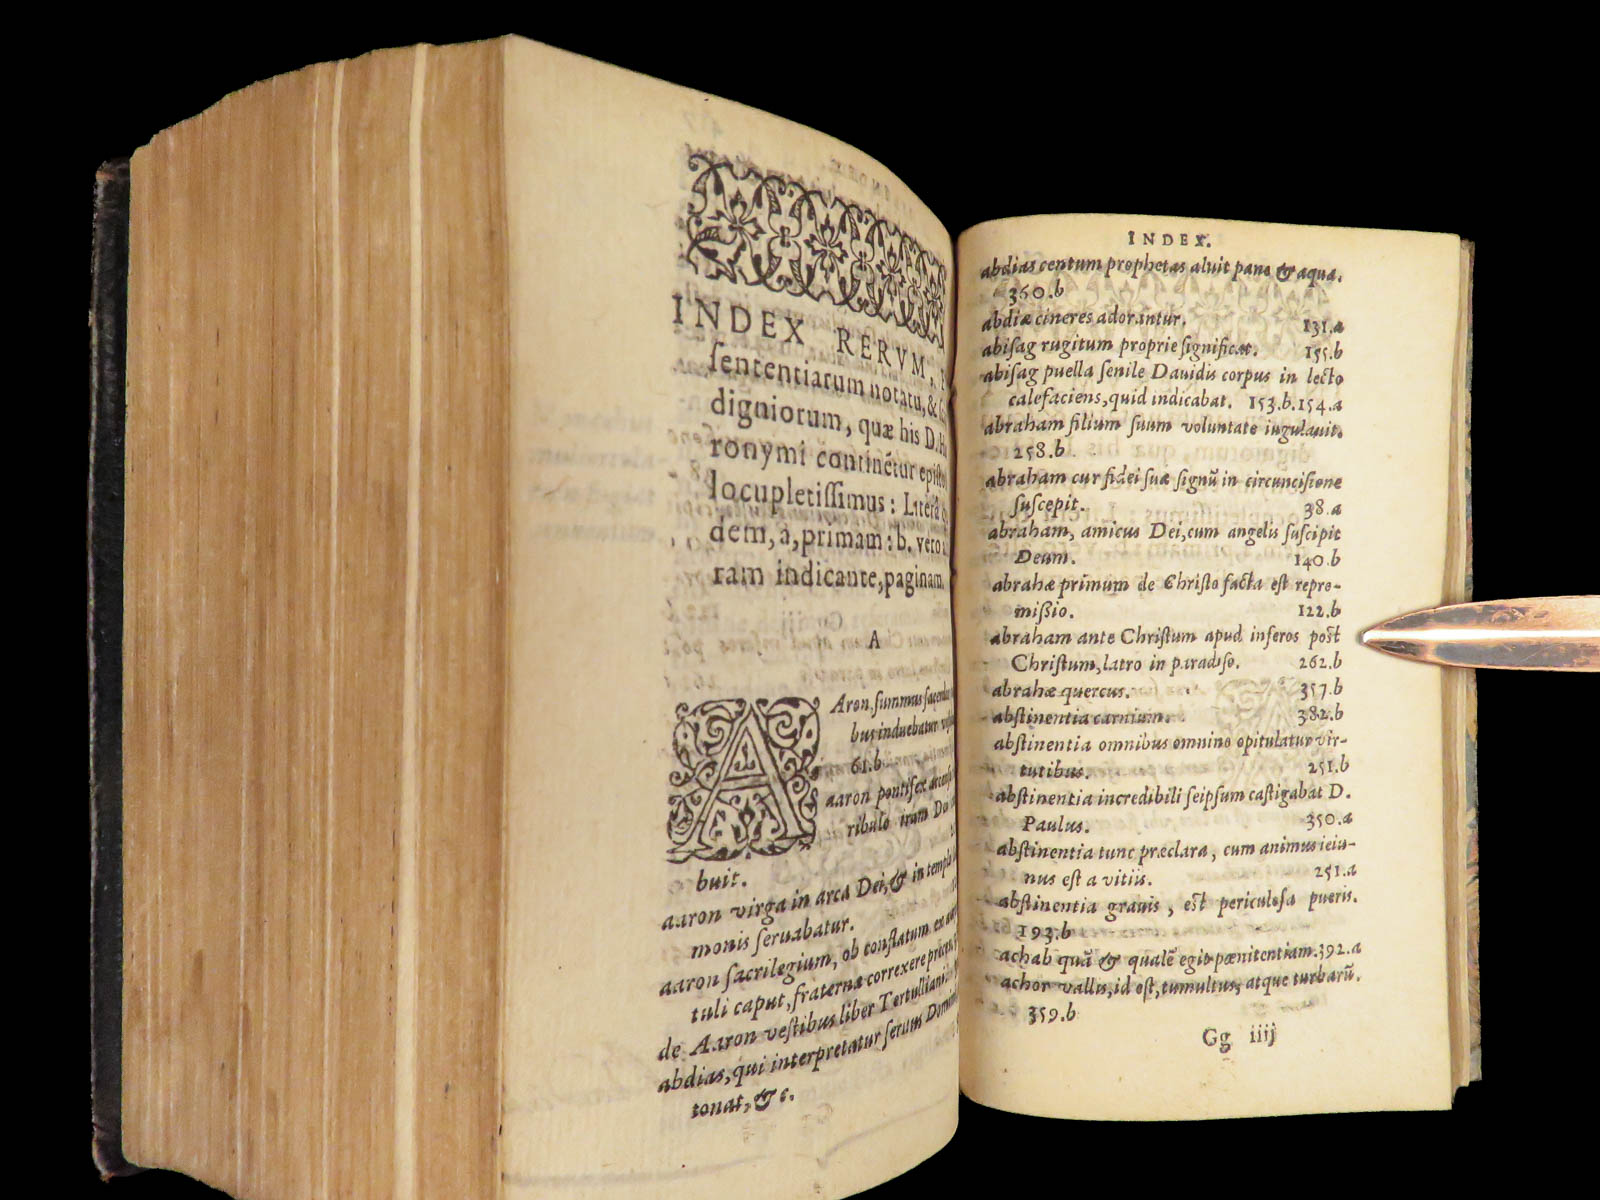 INDEX RERVM,
ſententiarum notatu, &
digniorum, quæ his D. Hie
ronymi continẽtur epiſto
locupletiſſimus: Literâ
dem, a, primam: b. vero
ram indicante, paginam.
A
Aron, ſummus ſacerdos
bus induebatur
61.b
aaron pontifex
ribulo iram Dei
buit.
aaron virga in arca Dei, & in templo
monis ſeruabatur.
aaron ſacrilegium, ob conflatum ex
tuli caput, fraternæ correxere
de Aaron veſtibus liber Tertulliani.
abdias, qui interpretatur ſeruus Domini
tonat, & c.
INDEX.
abdias centum prophetas aluit pane & aqua.
360.b
abdiæ cineres adorantur. 131.a
abiſag rugitum proprie ſignificat. 155.b
abiſag puella ſenile Dauidis corpus in lecto
calefaciens, quid indicabat. 153.b.154.a
abraham filium ſuum voluntate iugulauit.
258.b
abraham cur fidei ſuæ ſignũ in circunciſione
ſuſcepit. 38.a
abraham, amicus Dei, cum angelis ſuſcipit
Deum. 140.b
abrahæ primum de Chriſto facta eſt repro-
miſſio. 122.b
abraham ante Chriſtum apud inferos poſt
Chriſtum, latro in paradiſo. 262.b
abrahæ quercus. 357.b
abſtinentia carnium. 382.b
abſtinentia omnibus omnino opitulatur vir-
tutibus. 251.b
abſtinentia incredibili ſeipſum caſtigabat D.
Paulus. 350.a
abſtinentia tunc præclara, cum animus ieiu-
nus eſt a vitiis. 251.a
abſtinentia grauis, eſt periculoſa pueris.
193.b
achab quã & qualẽ egit pœnitentiam. 392.a
achor vallis, id eſt, tumultus, atque turbarũ.
359.b
Gg iiij